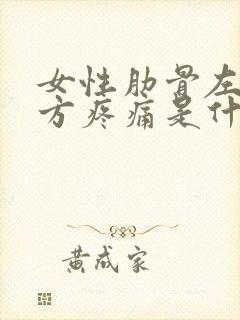 女性肋骨左
方疼痛是什
黄成家